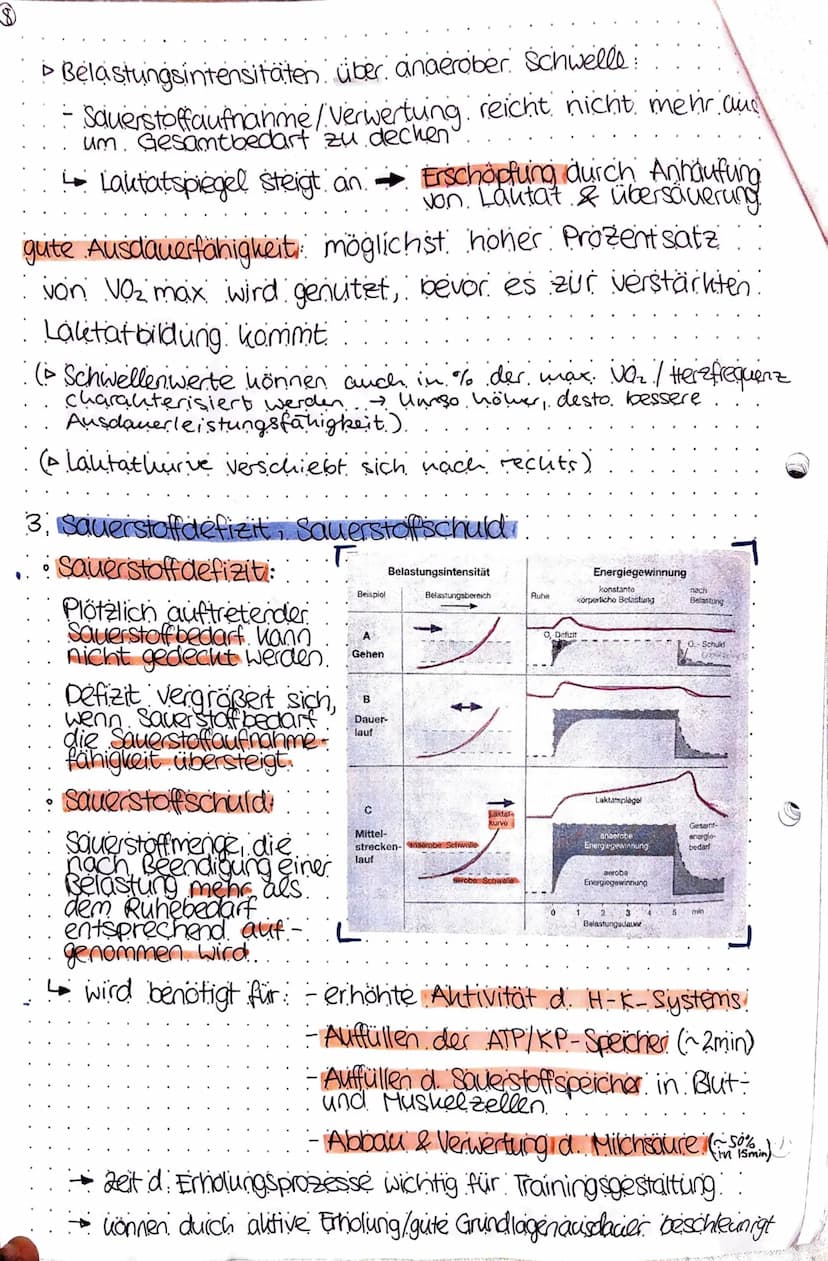 8
▷ Belastungsintensitäten über anaerober Schwelle:
- Sauerstoffaufnahme/Verwertung reicht nicht mehr aus
um Gesamtbedarf zu decken
↳ Laktatspiegel steigt an → Erschöpfung durch Anhäufung
von Laktat & übersäuerung
gute Ausdauerfähigkeit: möglichst hoher Prozentsatz
von VO₂ max wird genutzt, bevor es zur verstärkten
Laktatbildung kommt
(▷ Schwellenwerte können auch in % der max. VO₂ / Herzfrequenz
charakterisiert werden → Umso höher, desto bessere
Ausdauerleistungsfähigkeit.)
(▷ Laktatkurve verschiebt sich nach rechts)
3. Sauerstoffdefizit, Sauerstoffschuld
• Sauerstoffdefizit:
Plötzlich auftretender
Sauerstoffbedarf kann
nicht gedeckt werden.
Defizit vergrößert sich,
wenn Sauerstoffbedarf
die Sauerstoffaufnahme-
fähigkeit übersteigt.
• Sauerstoffschuld:
Sauerstoffmenge, die
nach Beendigung einer
Belastung mehr als
dem Ruhebedarf
entsprechend auf-
genommen wird.
Belastungsintensität
Energiegewinnung
Beispiel
Belastungsbereich
Ruhe
konstante
körperliche Belastung
nach
Belastung
A
Gehen
O₂ Defizit
O₂-Schuld
B
Dauer-
lauf
C
Mittel-
strecken-
lauf
Laktat-
kurve
anaerobe Schwelle
aerobe Schwelle
Laktatspiegel
anaerobe
Energiegewinnung
aerobe
Energiegewinnung
Gesamt-
energie-
bedarf
0 1 2 3 4 5 min
Belastungsdauer
↳ wird benötigt für: - erhöhte Aktivität d. H-K-Systems
- Auffüllen der ATP/KP-Speicher (~2min)
- Auffüllen d. Sauerstoffspeicher in Blut-
und Muskelzellen
- Abbau & Verwertung d. Milchsäure (~50%
in 15min)
→ Zeit d. Erholungsprozesse wichtig für Trainingsgestaltung
→ können durch aktive Erholung/gute Grundlagenausdauer beschleunigt